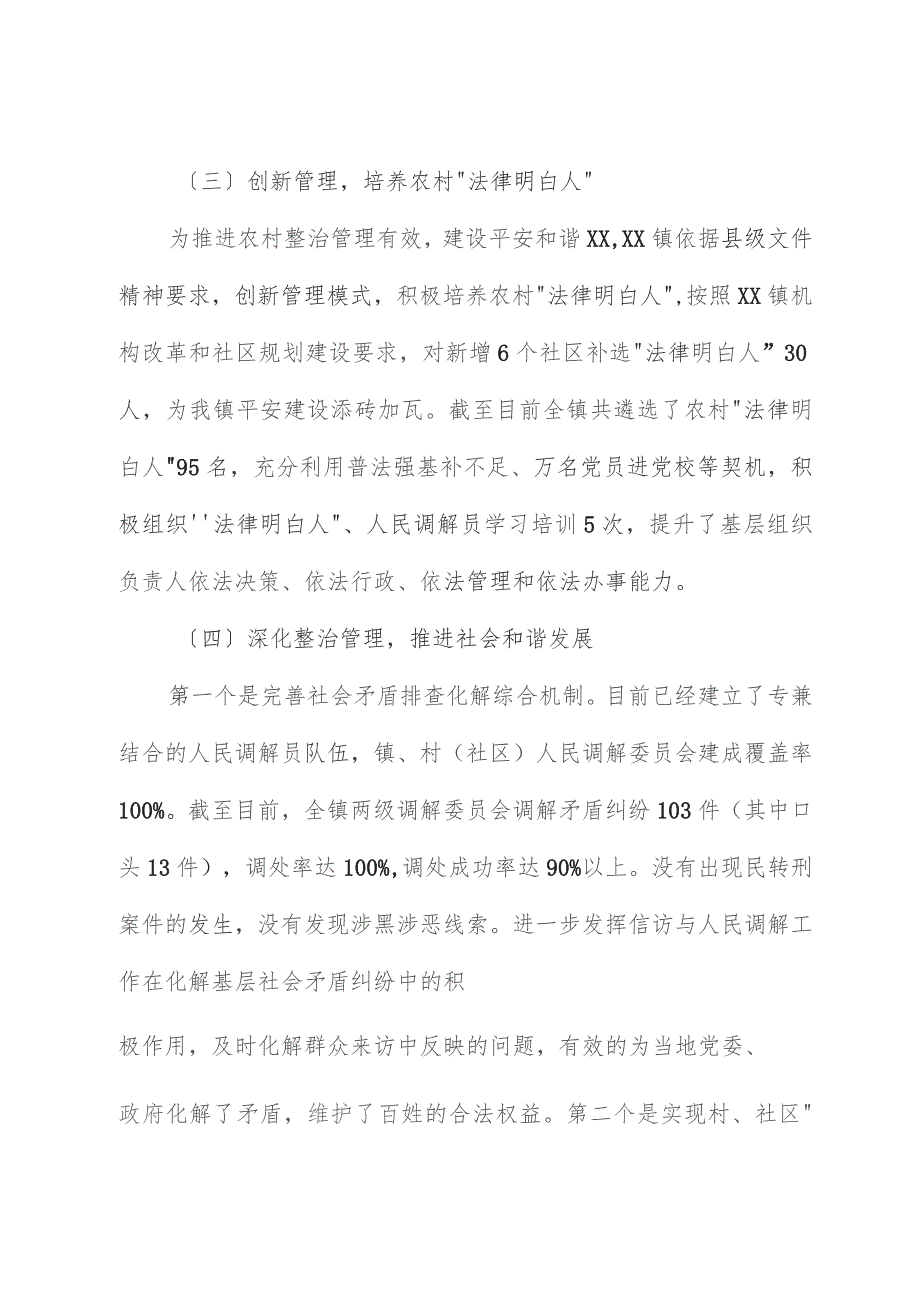 〔三〕创新管理，培养农村"法律明白人"
为推进农村整治管理有效，建设平安和谐 XX,XX 镇依据县级文件
精神要求，创新管理模式，积极培养农村"法律明白人",按照 XX 镇机
构改革和社区规划建设要求，对新增 6 个社区补选"法律明白人” 30
人，为我镇平安建设添砖加瓦。截至目前全镇共遴选了农村"法律明
白人"95 名，充分利用普法强基补不足、万名党员进党校等契机，积
极组织''法律明白人"、人民调解员学习培训 5 次，提升了基层组织
负责人依法决策、依法行政、依法管理和依法办事能力。
〔四〕深化整治管理，推进社会和谐发展
第一个是完善社会矛盾排查化解综合机制。目前已经建立了专兼
结合的人民调解员队伍，镇、村（社区）人民调解委员会建成覆盖率
100%。截至目前，全镇两级调解委员会调解矛盾纠纷 103 件（其中口
头 13 件），调处率达 100%,调处成功率达 90%以上。没有出现民转刑
案件的发生，没有发现涉黑涉恶线索。进一步发挥信访与人民调解工
作在化解基层社会矛盾纠纷中的积
极作用，及时化解群众来访中反映的问题，有效的为当地党委、
政府化解了矛盾，维护了百姓的合法权益。第二个是实现村、社区"